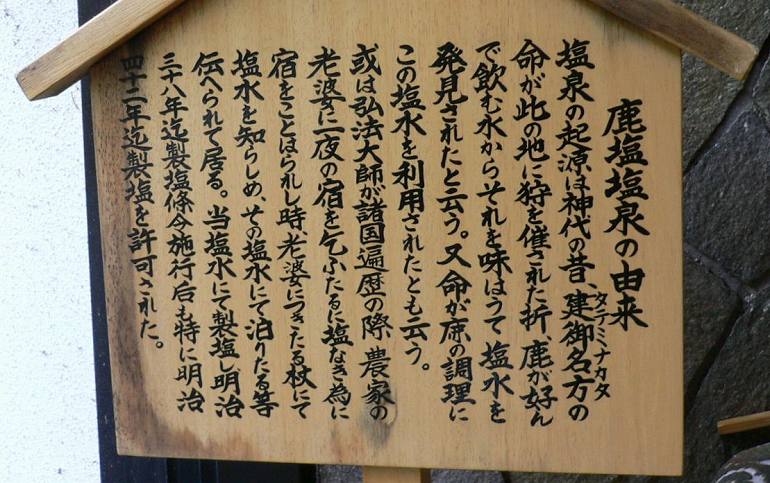 鹿塩塩泉の由来
塩泉の起源は神代の昔、建御名方の
タテミナカタ
命が此の地に狩を催された折、鹿が好ん
で飲む水からそれを味はうて塩水を
発見されたと云う。又命が鹿の調理に
この塩水を利用されたとも云う。
或は弘法大師が諸国遍歴の際、農家の
老婆に一夜の宿を乞ふたるに塩なき為に
宿をことはられし時老婆につきたる杖にて
塩水を知らしめ、その塩水にて泊りたる等
伝へられて居る。当塩水にて製塩し明治
三十八年迄製塩條令施行后も特に明治
四十二年迄製塩を許可された。